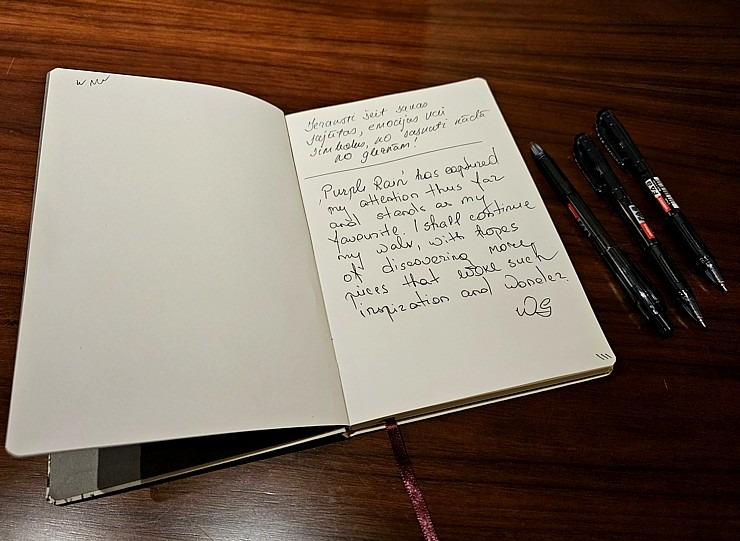 Ieraksti šeit savas
sajūtas, emocijas vai
simbolus, no sasnauti kādā
no gleznām!
'Purple Rain' has captured
my attention thus far
and stands as my
favourite. I shall continue
my walk, with hopes
of discovering more
pieces that evoke such
inspiration and wonder.
WG